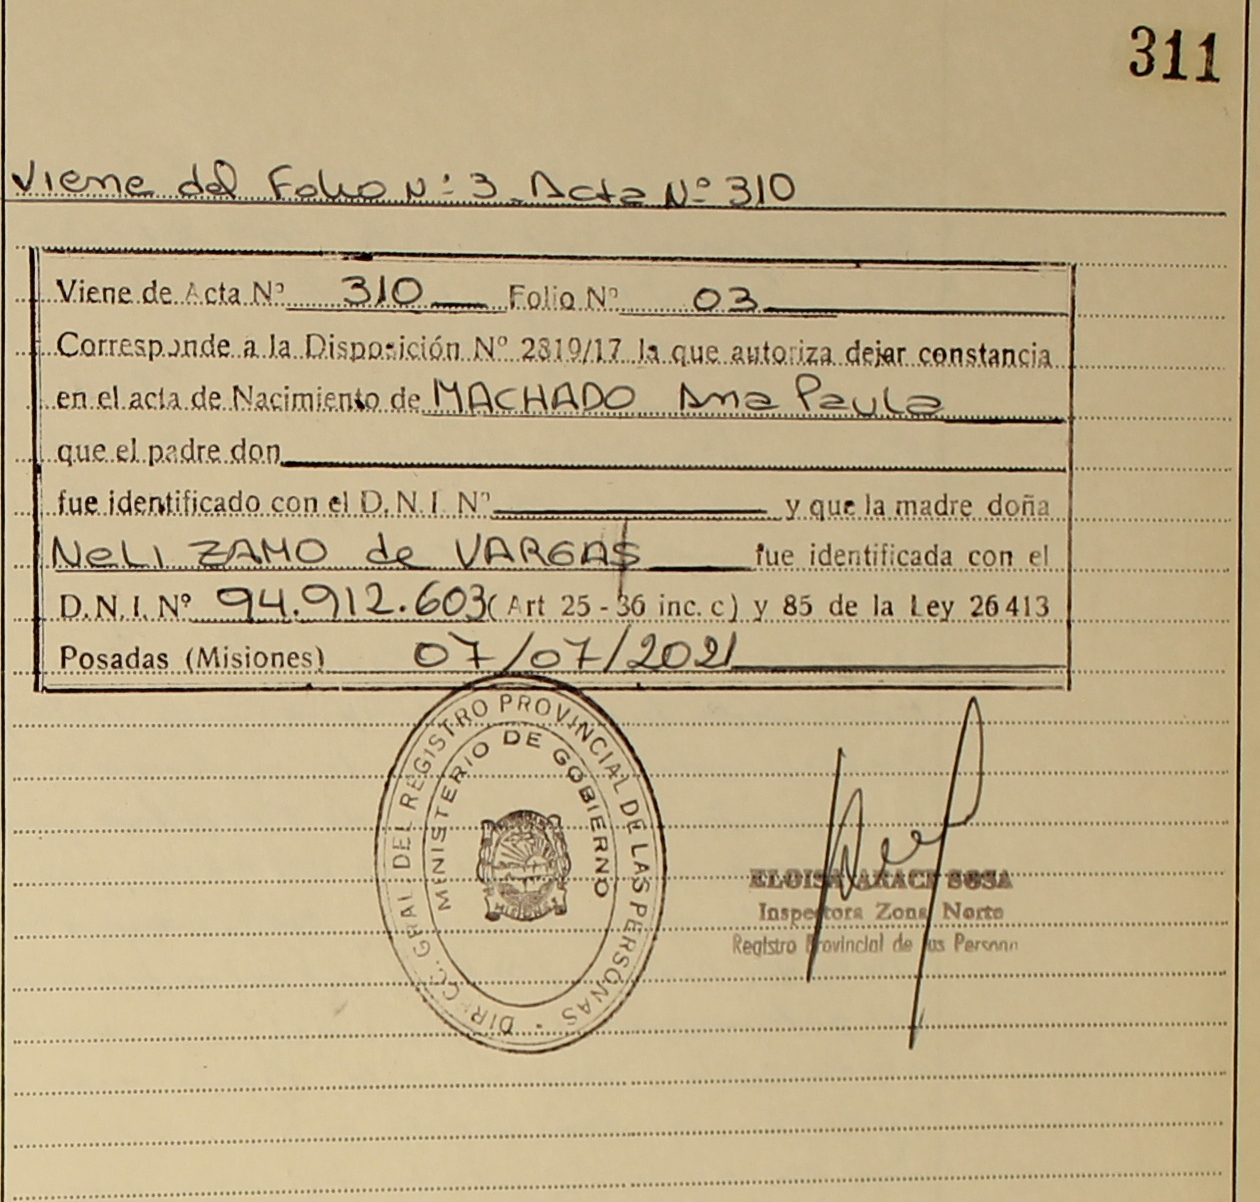 311
Viene del Folio Nº 3 Acta Nº 310
Viene de Acta Nº 310 Folio Nº 03
Corresponde a la Disposición Nº 2819/17 la que autoriza dejar constancia
en el acta de Nacimiento de MACHADO Ana Paula
que el padre don
fue identificado con el D.N.I. Nº y que la madre doña
NELI ZAMO de VARGAS fue identificada con el
D.N.I. Nº 94.912.603 (Art 25 - 36 inc. c) y 85 de la Ley 26413
Posadas (Misiones) 07/07/2021
DIRECC. GRAL DEL REGISTRO PROVINCIAL DE LAS PERSONAS
MINISTERIO DE GOBIERNO
ELOISA ARACI SOSA
Inspectora Zona Norte
Registro Provincial de las Persona